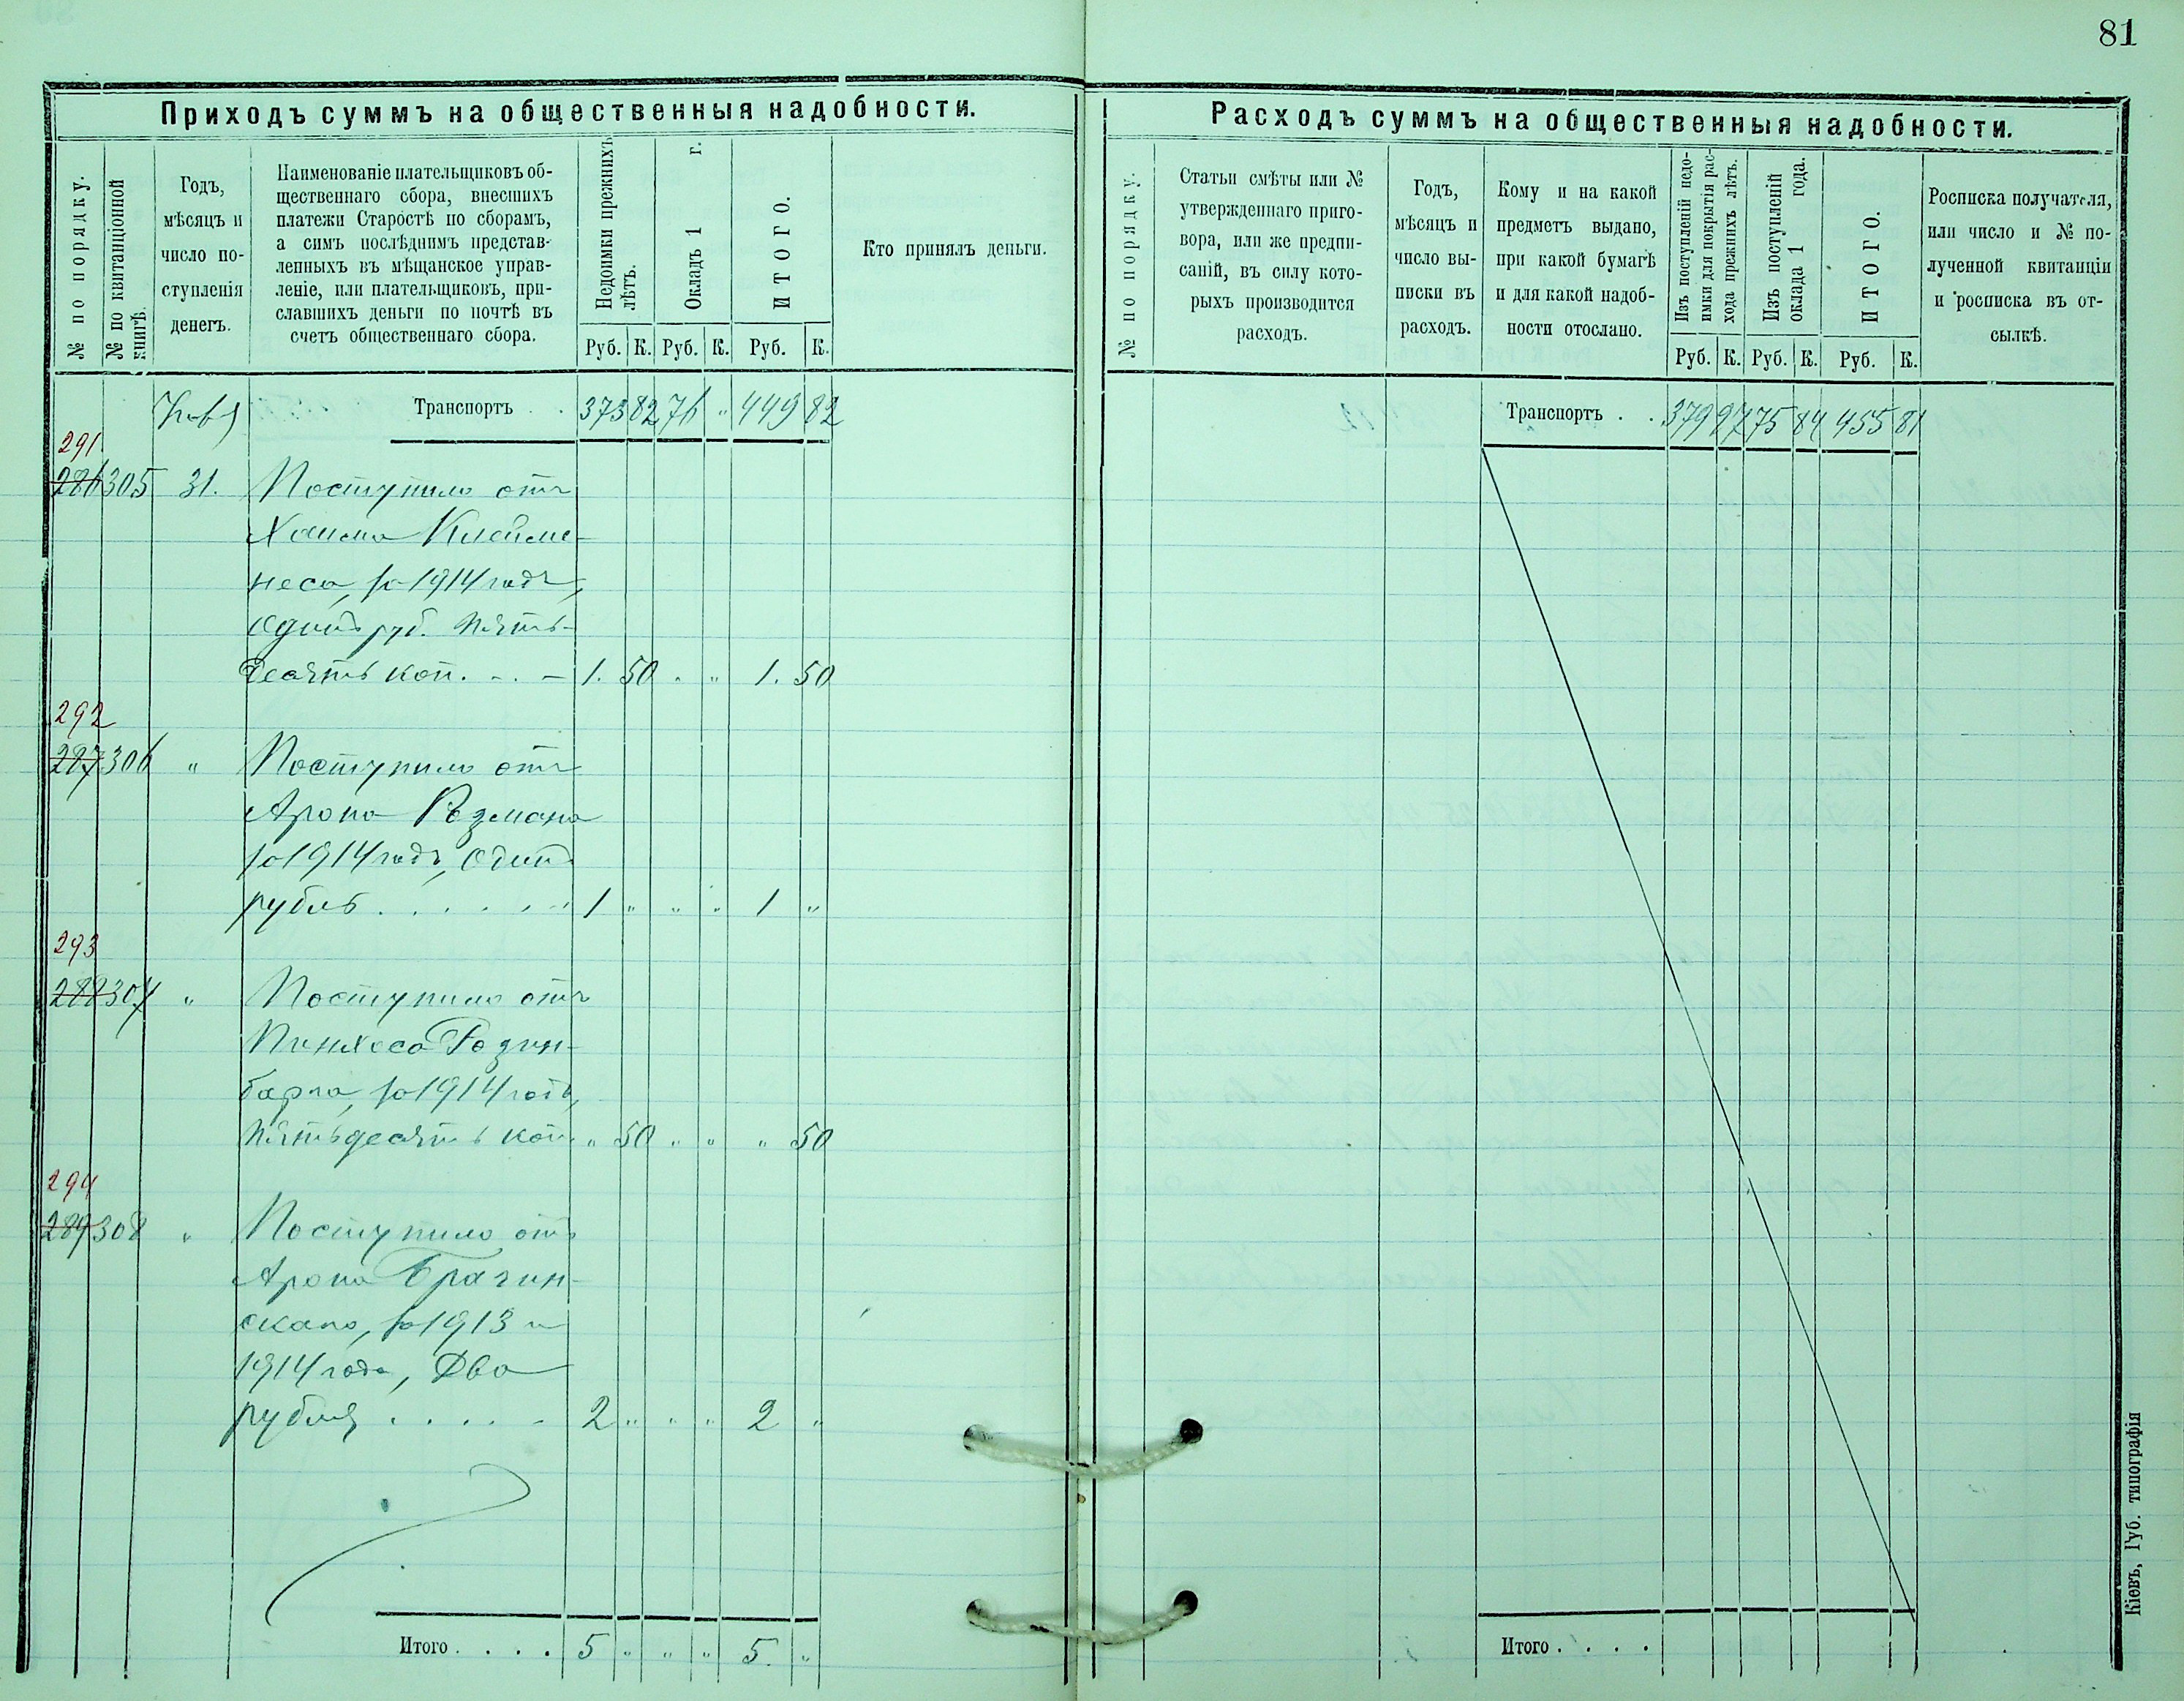 81
Приходъ суммъ на общественныя надобности.
№ по порядку.
№ по квитанціонной
книгѣ.
Годъ,
мѣсяцъ и
число по-
ступленія
денегъ.
Наименованіе плательщиковъ об-
щественнаго сбора, внесшихъ
платежи Старостѣ по сборамъ,
а симъ послѣднимъ представ-
ленныхъ въ мѣщанское управ-
леніе, или плательщиковъ, при-
славшихъ деньги по почтѣ въ
счетъ общественнаго сбора.
Недоимки прежнихъ
лѣтъ.
Окладъ 1 г.
ИТОГО.
Кто принялъ деньги.
Руб. К. Руб. К. Руб. К.
Транспортъ . . 373 82 76 " 449 82
291
286 305 31. Поступило отъ
Хаима Клейме-
неса, за 1914 годъ,
Одинъ руб. пять-
десятъ коп. . - . - 1. 50 " " 1. 50
292
287 306 " Поступило отъ
Арона Розмана
за 1914 годъ, Одинъ
рубль . . . . . . 1 " " " 1 "
293
288 307 " Поступило отъ
Пинхоса Розин-
барга, за 1914 годъ,
пятьдесятъ коп. " 50 " " " 50
294
289 308 " Поступило отъ
Арона Брагин-
скаго, за 1913 и
1914 года, Два
рубля . . . . - 2 " " " 2 "
Итого . . . . 5 " " " 5. "
Расходъ суммъ на общественныя надобности.
№ по порядку.
Статьи смѣты или №
утвержденнаго приго-
вора, или же предпи-
саній, въ силу кото-
рыхъ производится
расходъ.
Годъ,
мѣсяцъ и
число вы-
писки въ
расходъ.
Кому и на какой
предметъ выдано,
при какой бумагѣ
и для какой надоб-
ности отослано.
Изъ поступленій недо-
имки для покрытія рас-
хода прежнихъ лѣтъ.
Изъ поступленій
оклада 1 года.
ИТОГО.
Росписка получателя,
или число и № по-
лученной квитанціи
и росписка въ от-
сылкѣ.
Руб. К. Руб. К. Руб. К.
Транспортъ . . 379 97 75 84 455 81
Итого . . . .
Кіевъ, Губ. типографія